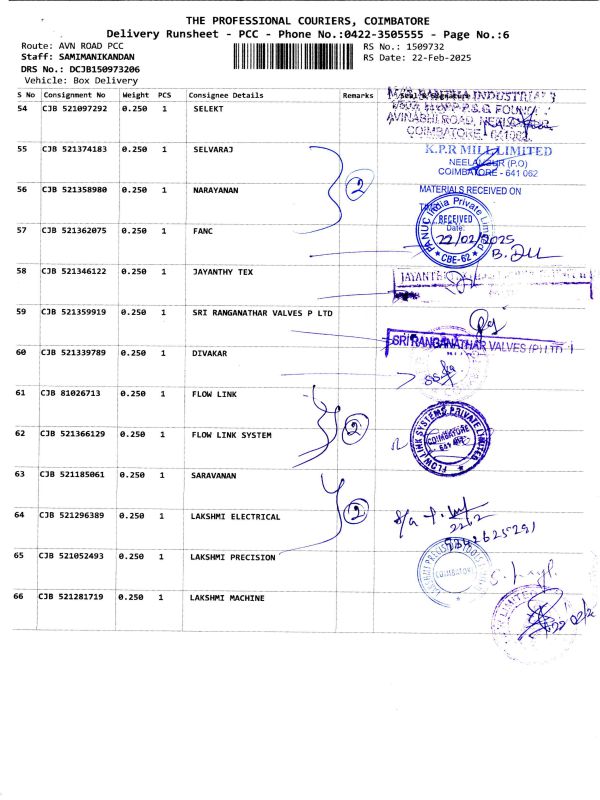 THE PROFESSIONAL COURIERS, COIMBATORE
Delivery Runsheet - PCC - Phone No.:0422-3505555 - Page No.:6
Route: AVN ROAD PCC
Staff: SAMIMANIKANDAN
DRS No.: DCJB150973206
Vehicle: Box Delivery
RS No.: 1509732
RS Date: 22-Feb-2025
S No Consignment No Weight PCS Consignee Details Remarks Seal & Signature
54 CJB 521097292 0.250 1 SELEKT
INDUSTRIAL
P.S.G. FOUN
AVINASHI ROAD,
COIMBATORE
55 CJB 521374183 0.250 1 SELVARAJ
K.P.R MILL LIMITED
(P.O)
COIMBATORE - 641 062
56 CJB 521358980 0.250 1 NARAYANAN
2
MATERIALS RECEIVED ON
India Private
RECEIVED
Date:
22/02/2025
CBE-62
57 CJB 521362075 0.250 1 FANC
58 CJB 521346122 0.250 1 JAYANTHY TEX
59 CJB 521359919 0.250 1 SRI RANGANATHAR VALVES P LTD
SRI RANGANATHAR VALVES (P) LTD
60 CJB 521339789 0.250 1 DIVAKAR
61 CJB 81026713 0.250 1 FLOW LINK
62 CJB 521366129 0.250 1 FLOW LINK SYSTEM
2
FLOW LINK SYSTEMS PRIVATE LIMITED
COIMBATORE
63 CJB 521185061 0.250 1 SARAVANAN
64 CJB 521296389 0.250 1 LAKSHMI ELECTRICAL
2
65 CJB 521052493 0.250 1 LAKSHMI PRECISION
66 CJB 521281719 0.250 1 LAKSHMI MACHINE